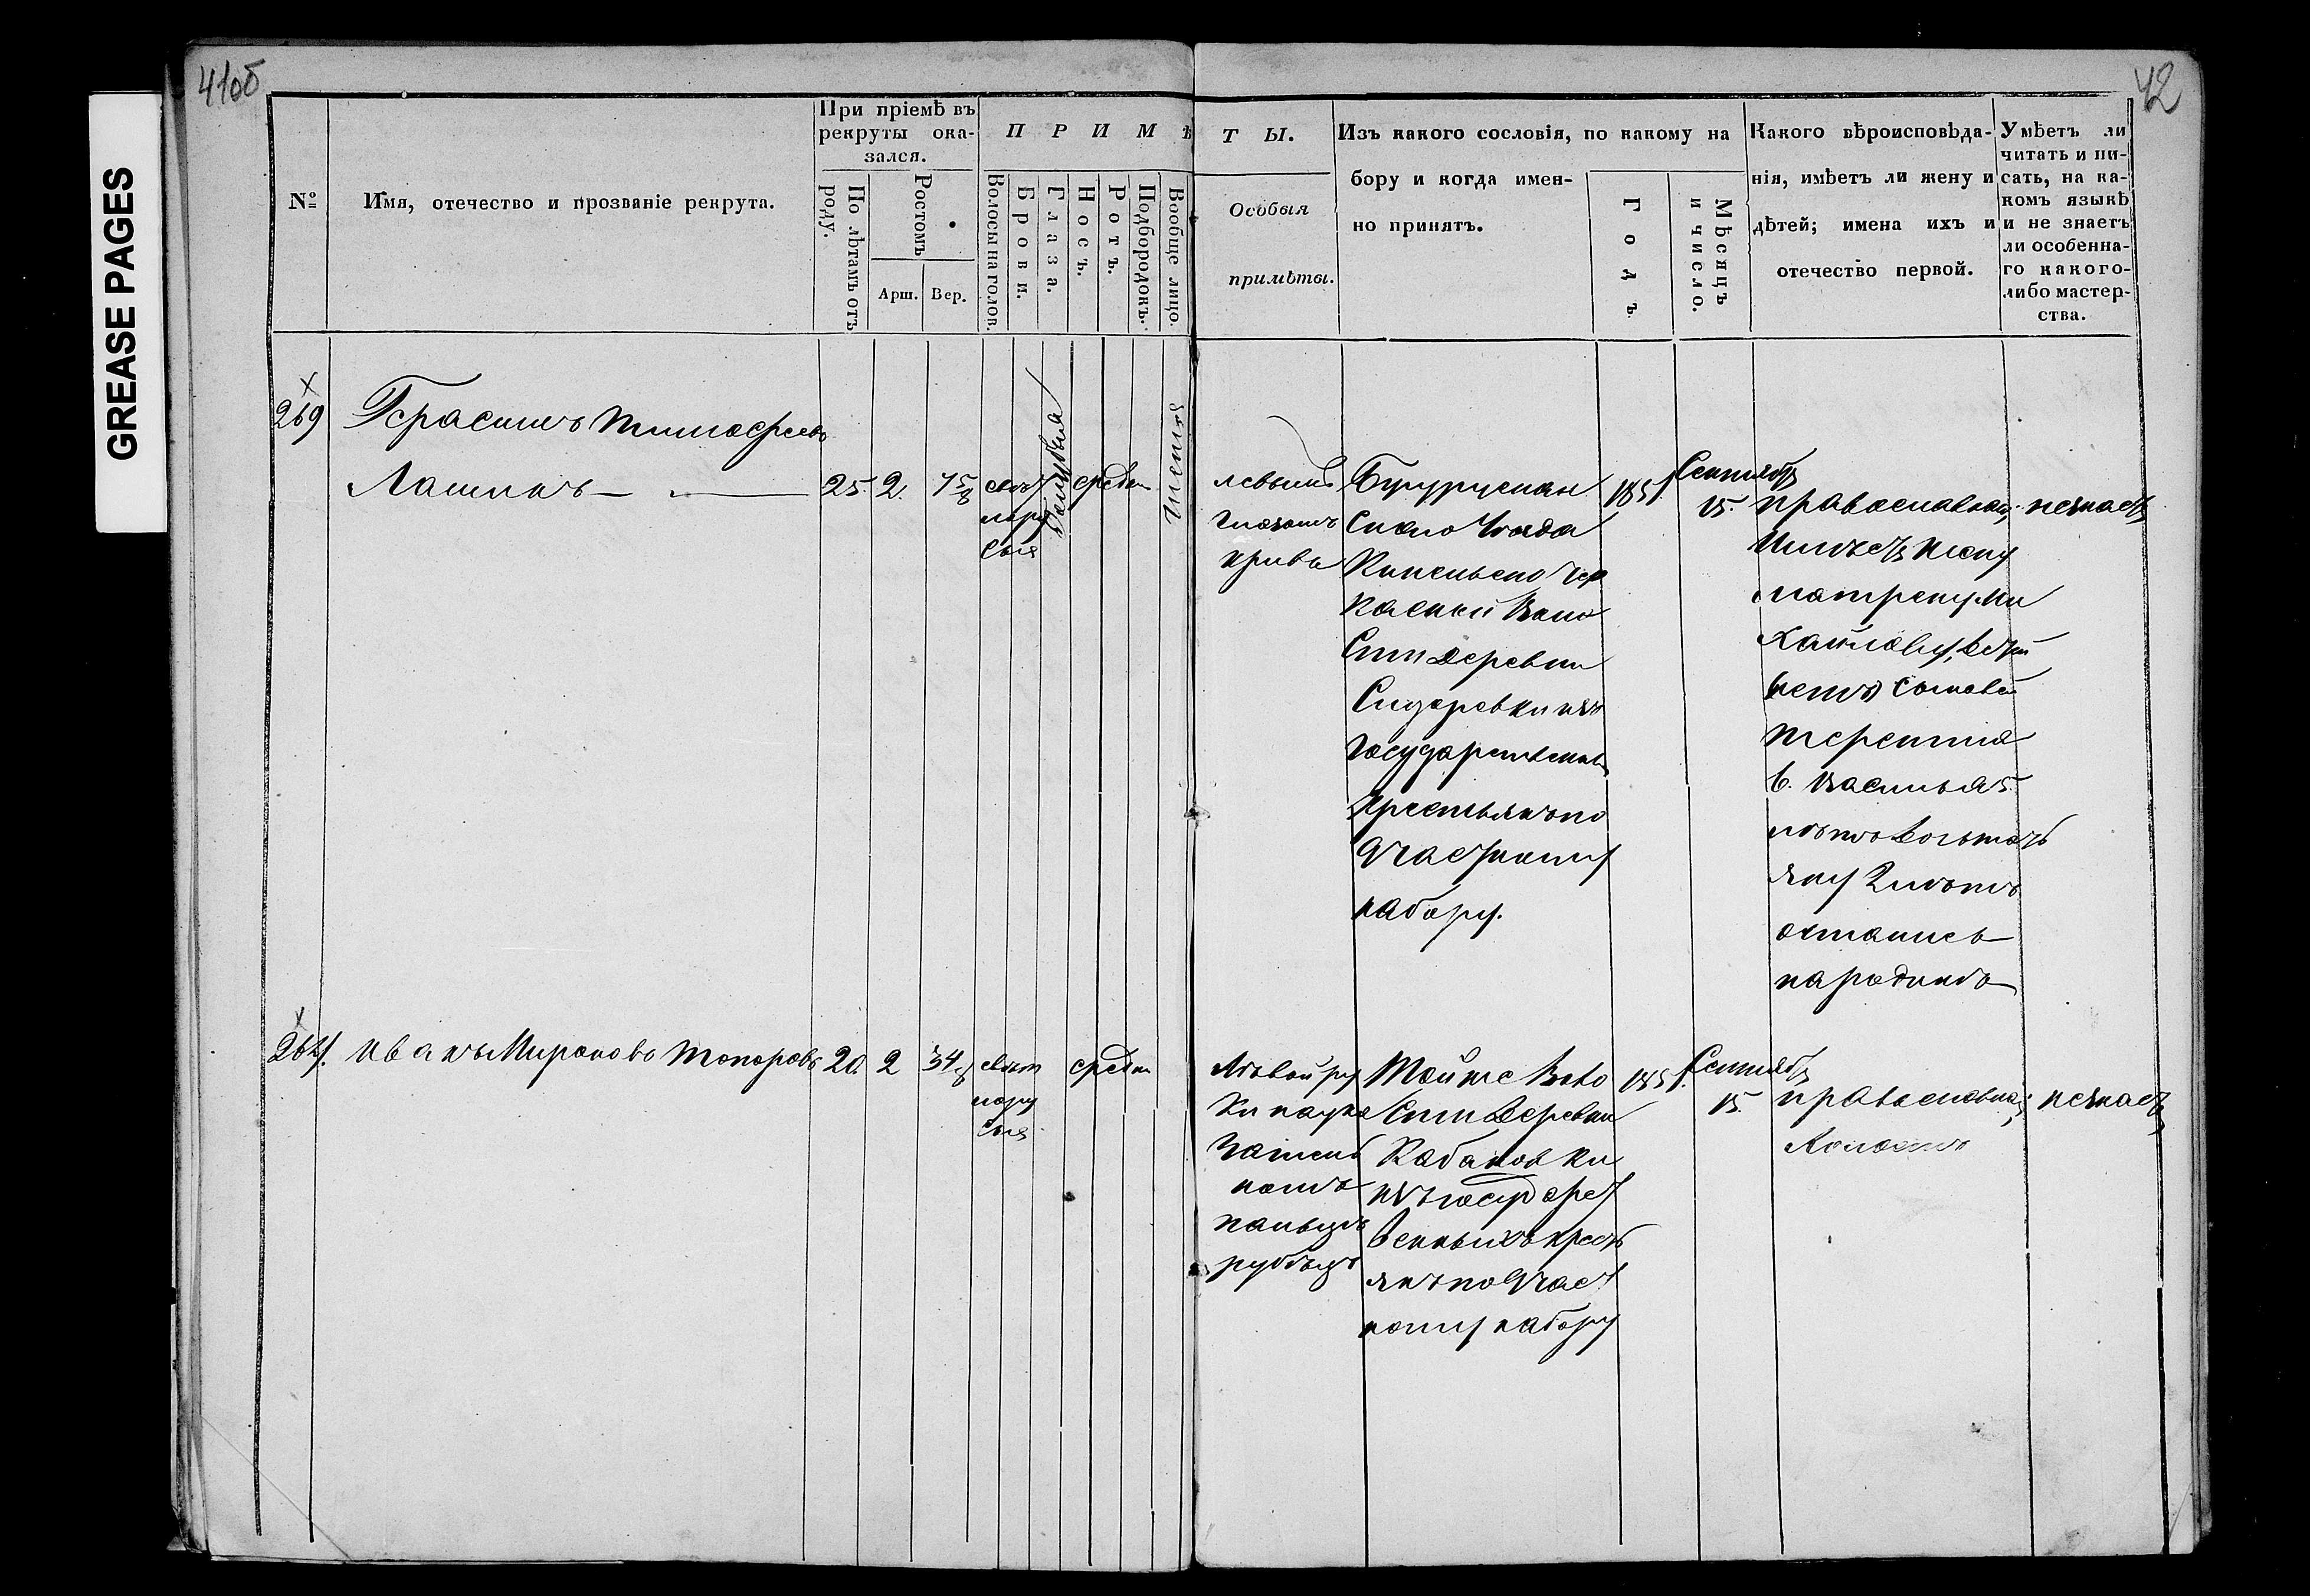 GREASE PAGES
41об
42
№
Имя, отечество и прозваніе рекрута.
При пріемѣ въ
рекруты ока-
зался.
По лѣтамъ отъ
роду.
Ростомъ
Арш.
Вер.
П Р И М Ѣ
Волосы на голов.
Брови.
Глаза.
Носъ.
Ротъ.
Подбородокъ.
Вообще лицо.
Т Ы.
Особыя
примѣты.
Изъ какого сословія, по какому на
бору и когда имен-
но принятъ.
Годъ
Мѣсяцъ
и число.
Какого вѣроисповѣда-
нія, имѣетъ ли жену и
дѣтей; имена ихъ и
отечество первой.
Умѣетъ ли
читать и пи-
сать, на ка-
комъ языкѣ
и не знаетъ
ли особенна-
го какого-
либо мастер-
ства.
269
Герасимъ Тимофеевъ
Лашинъ
25.
2.
свет
лору
сыя
голубыя
средн
левымъ
глазомъ
кривъ
Бугуруслан
скаго уезда
Кинельско чер
каской воло
сти деревни
Сидоровки изъ
государственны
крестьянъ по
участкому
набору.
1851
Сентябр
15.
православнаго,
имѣетъ жену
матрену ми
хайлову, детей
сыновей
терентия
6. василья 5.
летъ
остались
народинѣ
незнаетъ
Иванъ Мироновъ Топоровъ
20
2
свет
лору
сыя
средн
Лѣвой ру
ки наука
зательномъ
пальцѣ
рубѣцъ
Тойже воло
сти деревни
Кабановки
изъ государст
венныхъ крест
янъ по участ
кому набору
1851.
Сентябр
15.
православнаго,
Холостъ
незнаетъ